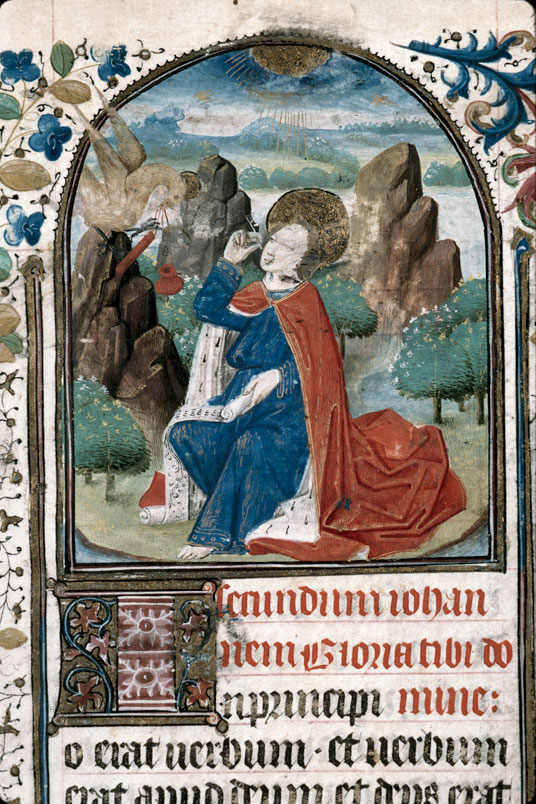 secundum iohan
nem Gloria tibi do
In principi mine:
o erat uerbum · et uerbum
erat apud deum et deus erat